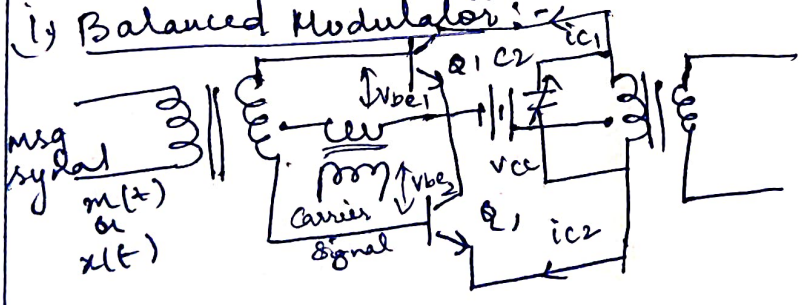 i) Balanced Modulator :-
ic1
Q1 C2
Vbe1
msg
signal
m(t)
or
x(t)
Vcc
Vbe2
Carrier
Signal
Q1
ic2